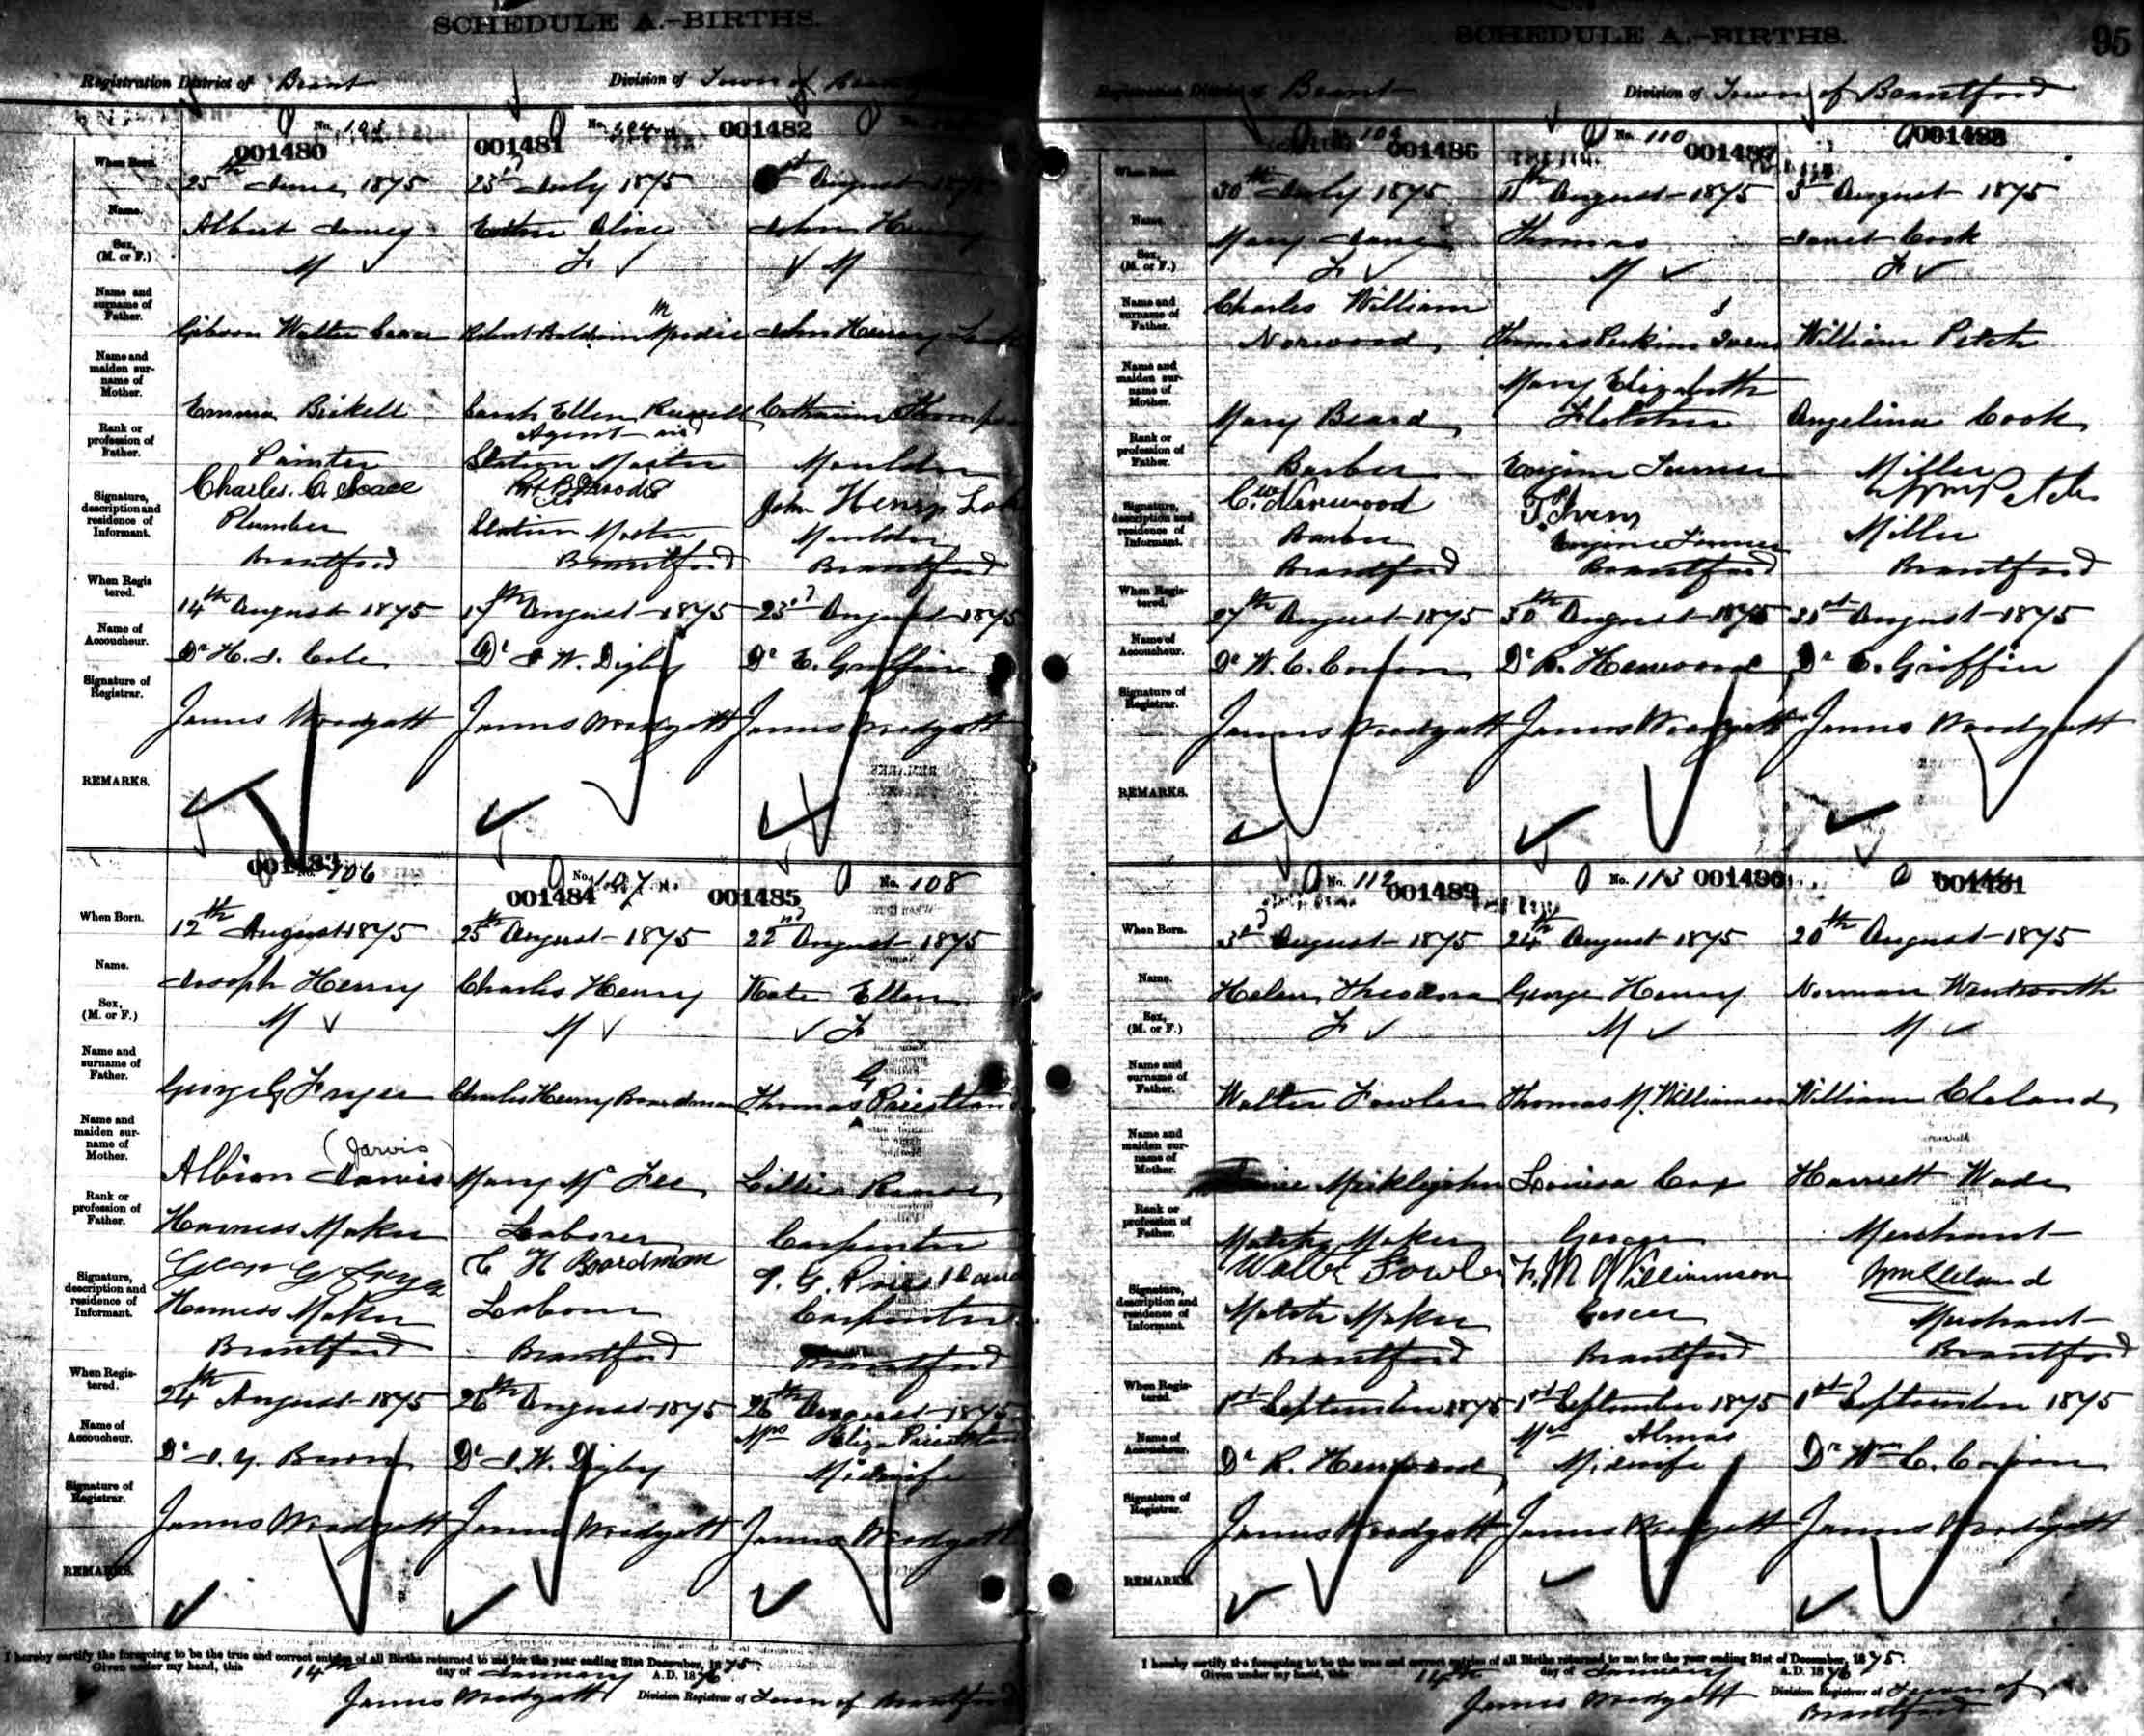 SCHEDULE A.–BIRTHS.
Registration District of Brant Division of Town of
001480
No. 104 001481
001482
When Born. 25th June 1875 23d July 1875 August 1875
Name. Albert James Esther Alice John Henry
Sex, (M. or F.) M F M
Name and surname of Father. Gibson Walter Robert Baldwin Moodie John Henry
Name and maiden surname of Mother. Emma Bickell Sarah Ellen Russell Catharine
Rank or profession of Father. Painter Agent and Station Master Moulder
Signature, description and residence of Informant. Charles. A. Plumber Brantford
Station Master Brantford
John Henry Moulder Brantford
When Registered. 14th August 1875 17th August 1875 23d August 1875
Name of Accoucheur. Dr H. J. Cole Dr J W. Digby Dr E. Griffin
Signature of Registrar. James Woodyatt James Woodyatt James Woodyatt
REMARKS.
001483 106
No. 107 001484
001485 No. 108
When Born. 12th August 1875 25th August 1875 22nd August 1875
Name. Joseph Henry Charles Henry Kate Ellen
Sex, (M. or F.) M M F
Name and surname of Father. George G Fryer Charles Henry Boardman Thomas G Priestland
Name and maiden surname of Mother. Albion Jarvis (Jarvis) Mary Mc Fee Lillie
Rank or profession of Father. Harness Maker Laborer Carpenter
Signature, description and residence of Informant. Geor G Fryer Harness Maker Brantford
C H Boardman Laborer Brantford
T. G. Priestland Carpenter Brantford
When Registered. 24th August 1875 26th August 1875 26th August 1875
Name of Accoucheur. Dr J. Y. Bown Dr J. W. Digby Mrs Eliza Priestland Midwife
Signature of Registrar. James Woodyatt James Woodyatt James Woodyatt
REMARKS.
I hereby certify the foregoing to be the true and correct entries of all Births returned to me for the year ending 31st December, 1875.
Given under my hand, this 14th day of January A.D. 1876.
James Woodyatt Division Registrar of Town of Brantford
SCHEDULE A.–BIRTHS. 95
Registration District of Brant Division of Town of Brantford
001486
No. 110 001487
001488
When Born. 30th July 1875 August 1875 3d August 1875
Name. Mary Jane Thomas Janet Cook
Sex, (M. or F.) F M F
Name and surname of Father. Charles William Norwood Thomas Perkins Ivens William Petch
Name and maiden surname of Mother. Mary Beard Mary Elizabeth Fletcher Angelina Cook
Rank or profession of Father. Barber Engine Turner Miller
Signature, description and residence of Informant. C. W. Norwood Barber Brantford
T. P. Ivens Engine Turner Brantford
Wm Petch Miller Brantford
When Registered. 27th August 1875 30th August 1875 31st August 1875
Name of Accoucheur. Dr W. C. Corson Dr R. Henwood Dr E. Griffin
Signature of Registrar. James Woodyatt James Woodyatt James Woodyatt
REMARKS.
No. 112 001489
No. 113 001490
001491
When Born. 3rd August 1875 24th August 1875 20th August 1875
Name. Helen Theodora George Henry Norman Wentworth
Sex, (M. or F.) F M M
Name and surname of Father. Walter Fowler Thomas M. Williamson William Cleland
Name and maiden surname of Mother. Miklejohn Louisa Cox Harriett Wade
Rank or profession of Father. Match Maker Grocer Merchant
Signature, description and residence of Informant. Walter Fowler Match Maker Brantford
T. M Williamson Grocer Brantford
Wm Cleland Merchant Brantford
When Registered. 1st September 1875 1st September 1875 1st September 1875
Name of Accoucheur. Dr R. Henwood Mrs Almas Midwife Dr Wm C. Corson
Signature of Registrar. James Woodyatt James Woodyatt James Woodyatt
REMARKS.
I hereby certify the foregoing to be the true and correct entries of all Births returned to me for the year ending 31st of December, 1875.
Given under my hand, this 14th day of January A.D. 1876
James Woodyatt Division Registrar of Town of Brantford